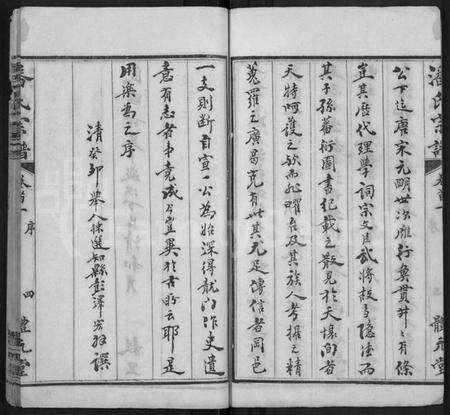 潘氏宗譜
卷首一
體元堂
公下迄唐宋元明世次雁行魚貫井井有條
其歷代理學詞宗文臣武將殺身隱德而
其子孫蕃衍圖書紀載之散見於天壤間者
天特呵護之於兵燹
及其族人考據之精
蒐羅之廣曷克有此其尤足傳信者同邑
一支則斷自宣一公為始深得龍門作史遺
意有志者事竟成公宜異於古所云耶是
用樂為之序
清癸卯舉人揀選知縣彭澤
撰
潘氏宗譜
卷首一
序
四
體元堂